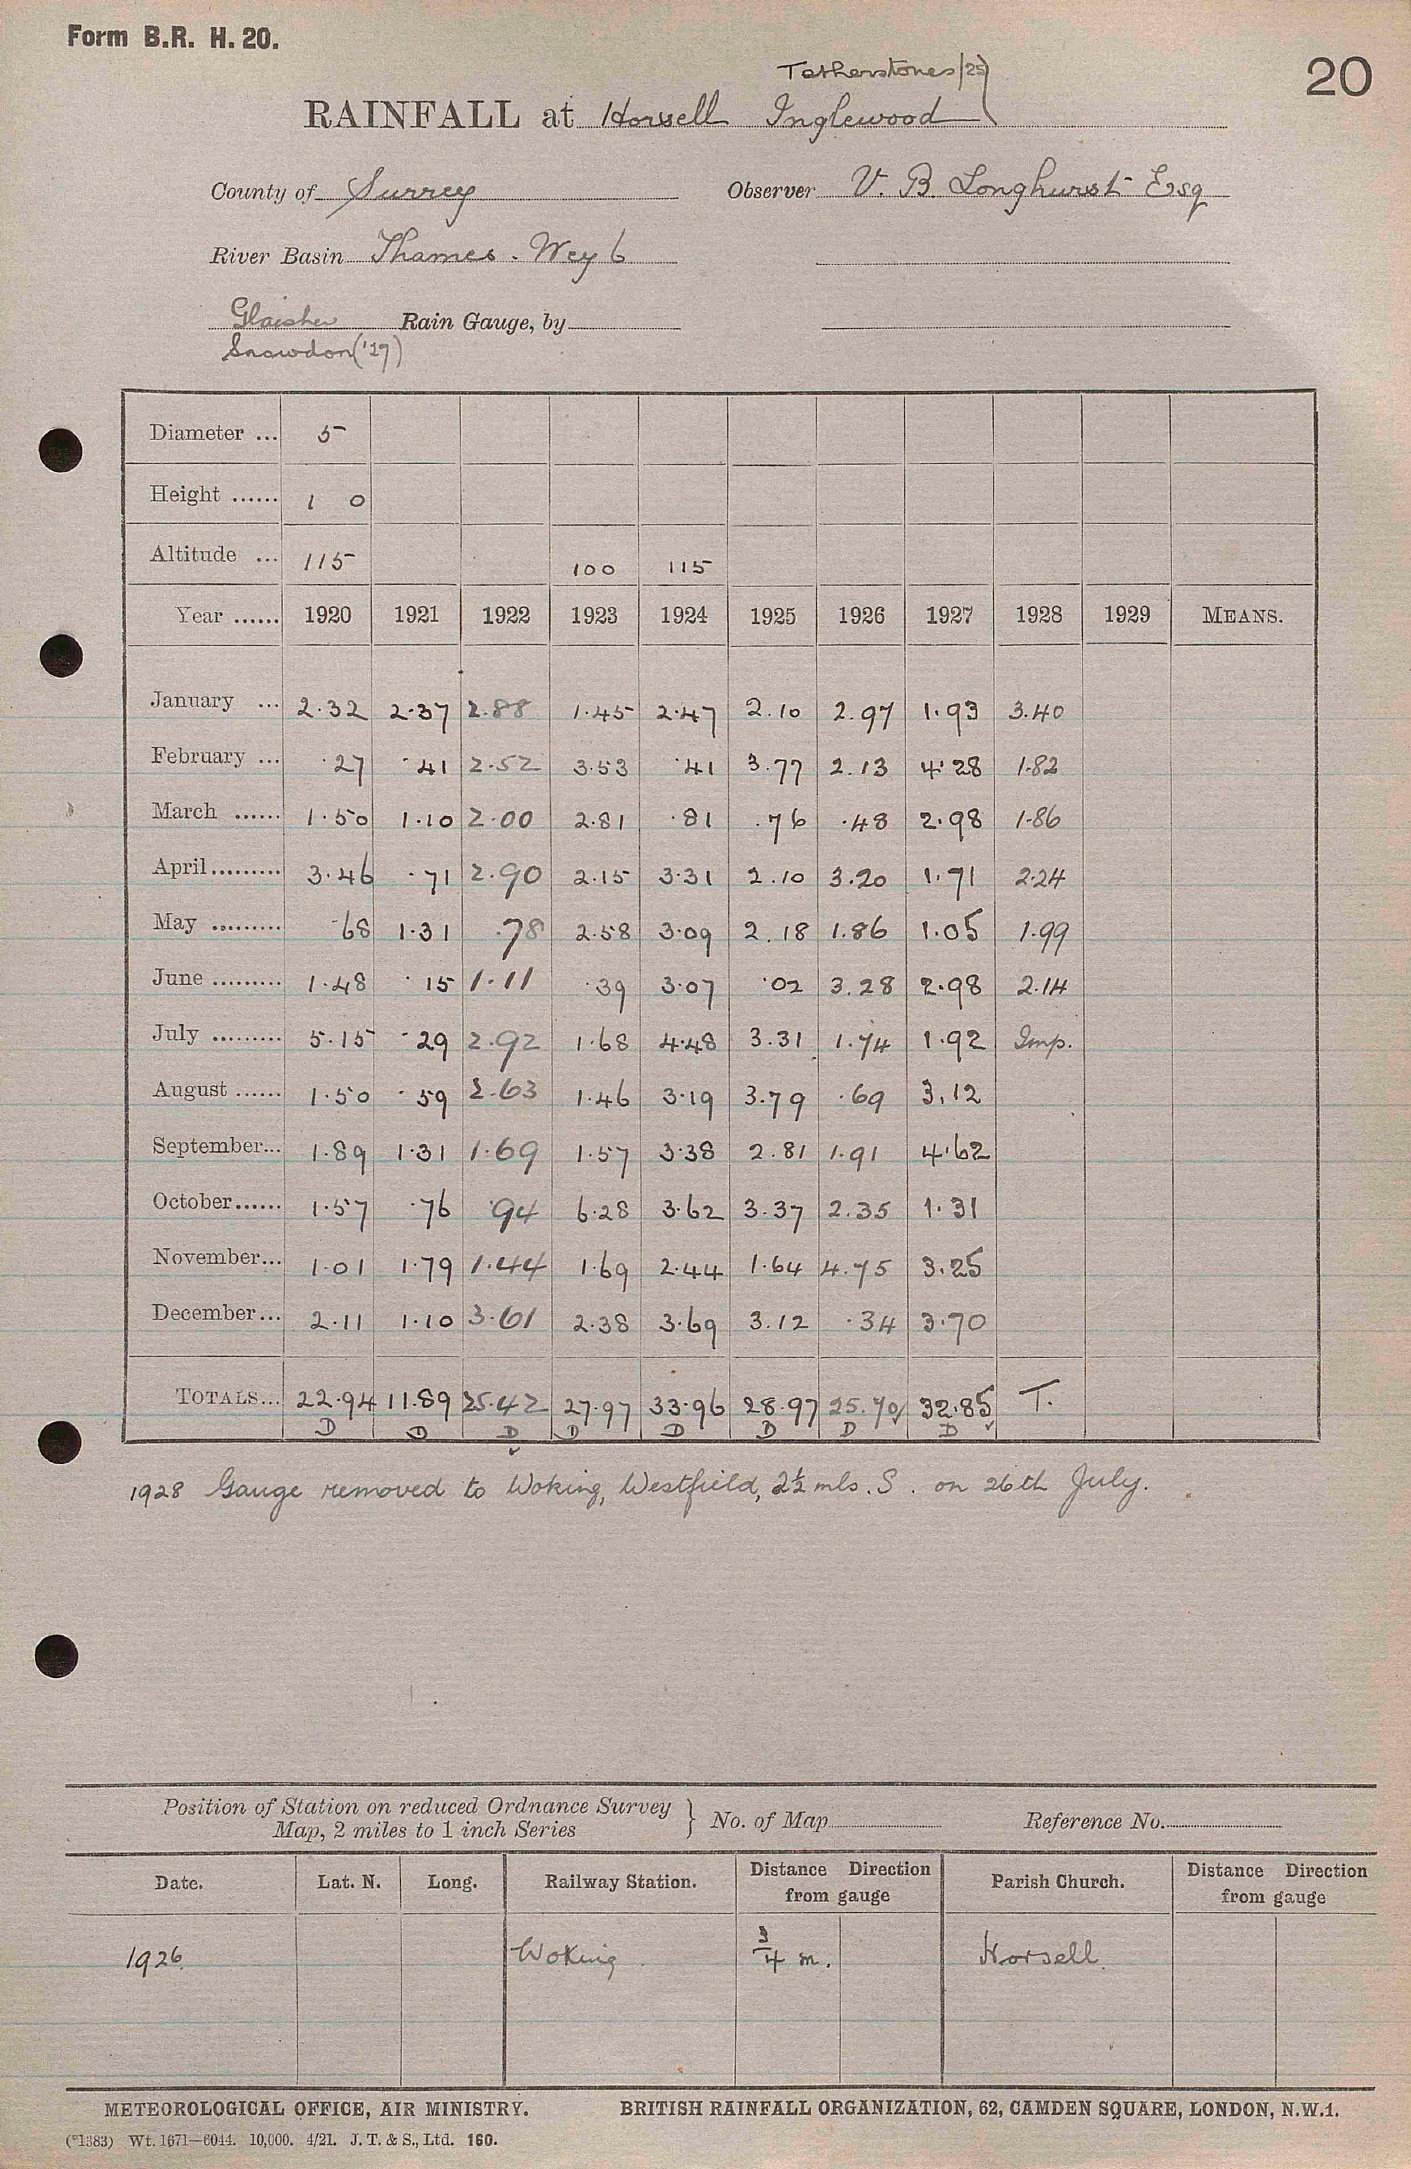 Form B.R. H. 20.
20
Tetherstones (25)
RAINFALL at Horsell Inglewood
County of Surrey Observer V. B. Longhurst Esq
River Basin Thames. Wey 6
Glaisher Rain Gauge, by
Snowdon ('27)
Diameter ... 5
Height ...... 1 0
Altitude ... 115 100 115
Year ...... 1920 1921 1922 1923 1924 1925 1926 1927 1928 1929 MEANS.
January ... 2.32 2.37 2.88 1.45 2.47 2.10 2.97 1.93 3.40
February ... .27 .41 2.52 3.53 .41 3.77 2.13 4.28 1.82
March ...... 1.50 1.10 2.00 2.81 .81 .76 .48 2.98 1.86
April......... 3.46 .71 2.90 2.15 3.31 2.10 3.20 1.71 2.24
May ......... .68 1.31 .78 2.58 3.09 2.18 1.86 1.05 1.99
June ......... 1.48 .15 1.11 .39 3.07 .02 3.28 2.98 2.14
July ......... 5.15 .29 2.92 1.68 4.48 3.31 1.74 1.92 Imp.
August ...... 1.50 .59 2.63 1.46 3.19 3.79 .69 3.12
September... 1.89 1.31 1.69 1.57 3.38 2.81 1.91 4.62
October...... 1.57 .76 .94 6.28 3.62 3.37 2.35 1.31
November... 1.01 1.79 1.44 1.69 2.44 1.64 4.75 3.25
December... 2.11 1.10 3.61 2.38 3.69 3.12 .34 3.70
TOTALS... 22.94 11.89 25.42 27.97 33.96 28.97 25.70 32.85 T.
D D D D D D D D
1928 Gauge removed to Woking, Westfield, 2½ mls. S. on 26th July.
Position of Station on reduced Ordnance Survey
Map, 2 miles to 1 inch Series } No. of Map Reference No.
Date. Lat. N. Long. Railway Station. Distance Direction from gauge Parish Church. Distance Direction from gauge
1926. Woking. ¾ m. Horsell.
METEOROLOGICAL OFFICE, AIR MINISTRY. BRITISH RAINFALL ORGANIZATION, 62, CAMDEN SQUARE, LONDON, N.W.1.
(*1383) Wt. 1671—6044. 10,000. 4/21. J. T. & S., Ltd. 160.